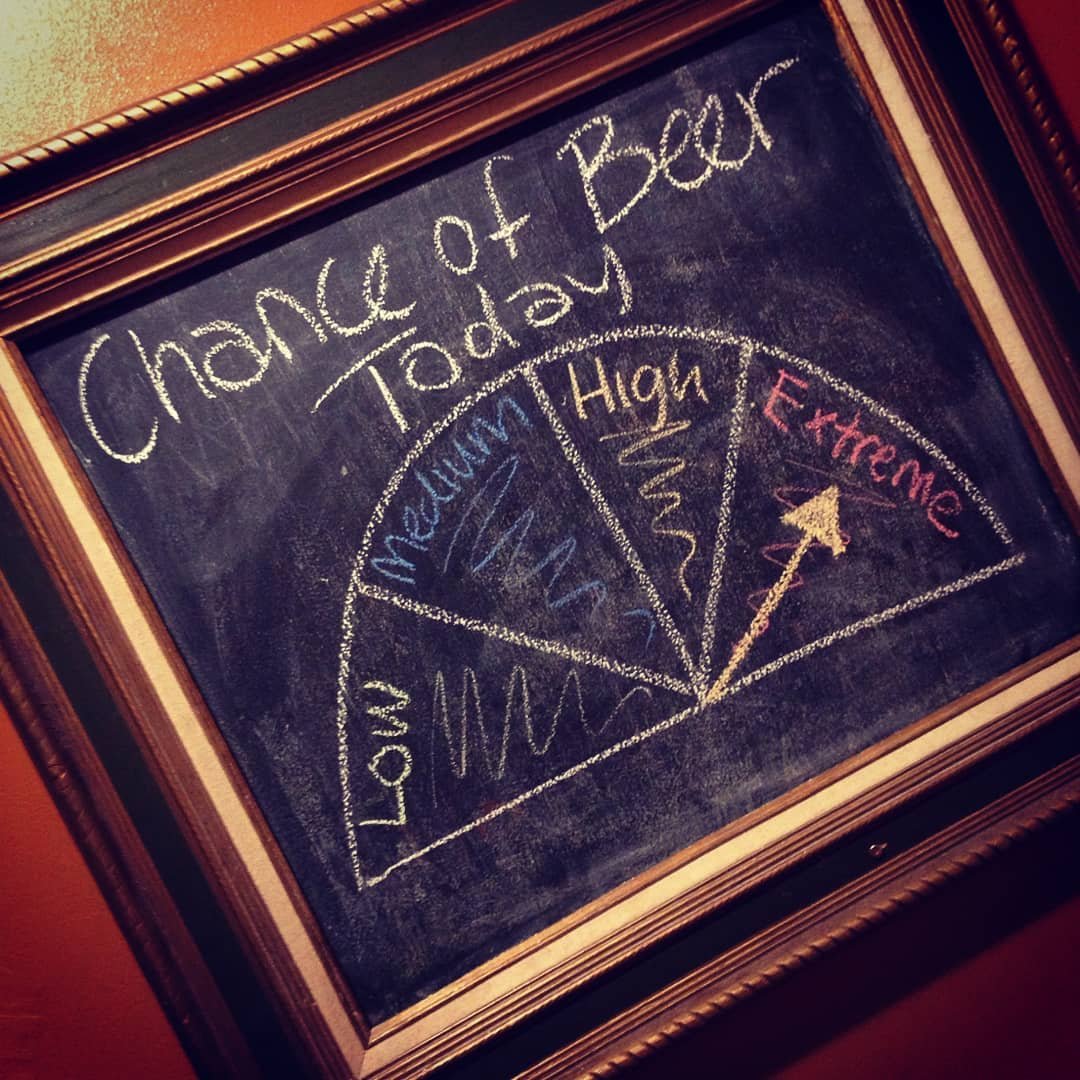 Chance of Beer
Today
Low
Medium
High
Extreme